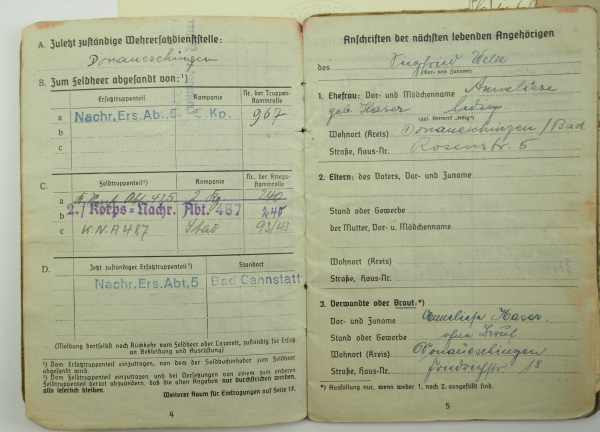 A. Zuletzt zuständige Wehrersatzdienststelle:
Donaueschingen
B. Zum Feldheer abgesandt von:¹)
Ersatztruppenteil Kompanie Nr. der Truppen-
stammrolle
a Nachr. Ers. Abt. 5 Kp. 967
b
c
C.
Feldtruppenteil²) Kompanie Nr. der Kriegs-
stammrolle
a 2 240
b 2./ Korps=Nachr. Abt. 487 240
c K.N.A 487 Stab 93/43
D.
Jetzt zuständiger Ersatztruppenteil¹) Standort
Nachr. Ers. Abt, 5 Bad Cannstatt
(Meldung dortselbst nach Rückkehr vom Feldheer oder Lazarett, zuständig für Ersatz
an Bekleidung und Ausrüstung)
¹) Vom Ersatztruppenteil einzutragen, von dem der Soldbuchinhaber zum Feldheer
abgesandt wird.
²) Vom Feldtruppenteil einzutragen und bei Versetzungen von einem zum anderen
Feldtruppenteil derart abzuändern, daß die alten Angaben nur durchstrichen werden,
also leserlich bleiben.
Weiterer Raum für Eintragungen auf Seite 17.
4
Anschriften der nächsten lebenden Angehörigen
des Siegfried
(Vor- und Zuname)
1. Ehefrau: Vor- und Mädchenname Anneliese
geb. Haser ledig
(ggf. Vermerk „ledig")
Wohnort (Kreis) Donaueschingen / Bad.
Straße, Haus-Nr. Rosenstr. 5
2. Eltern: des Vaters, Vor- und Zuname
Stand oder Gewerbe
der Mutter, Vor- u. Mädchenname
Wohnort (Kreis)
Straße, Haus-Nr.
3. Verwandte oder Braut:*)
Vor- und Zuname Anneliese Haser
Stand oder Gewerbe ohne Beruf
Wohnort (Kreis) Donaueschingen
Straße, Haus-Nr. Friedrichstr. 18
*) Ausfüllung nur, wenn weder 1. noch 2. ausgefüllt sind.
5